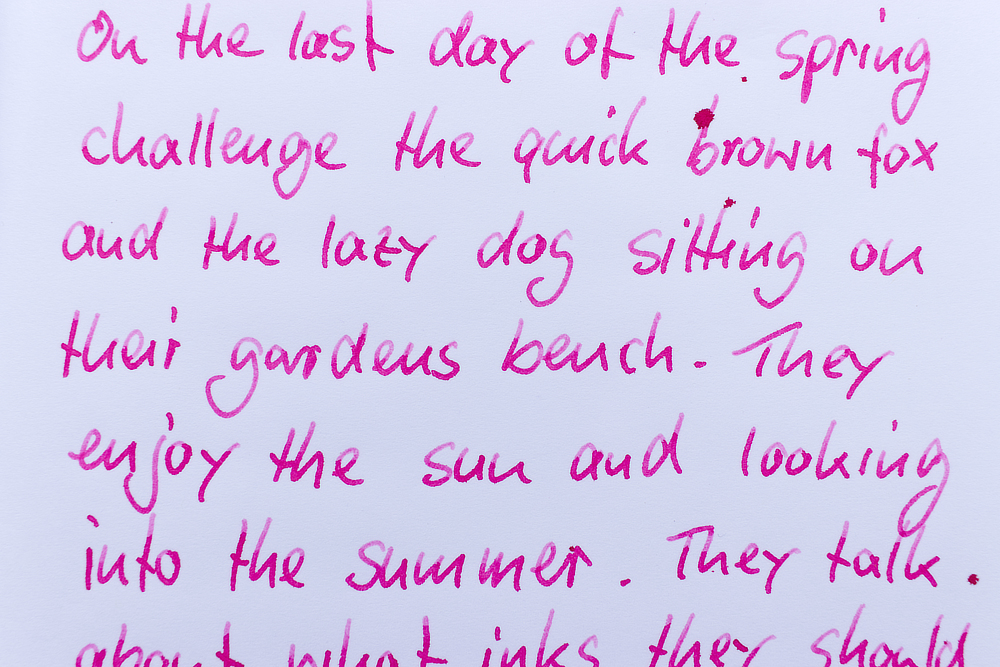 On the last day of the spring
challenge the quick brown fox
and the lazy dog sitting on
their gardens bench. They
enjoy the sun and looking
into the summer. They talk
about what inks they should